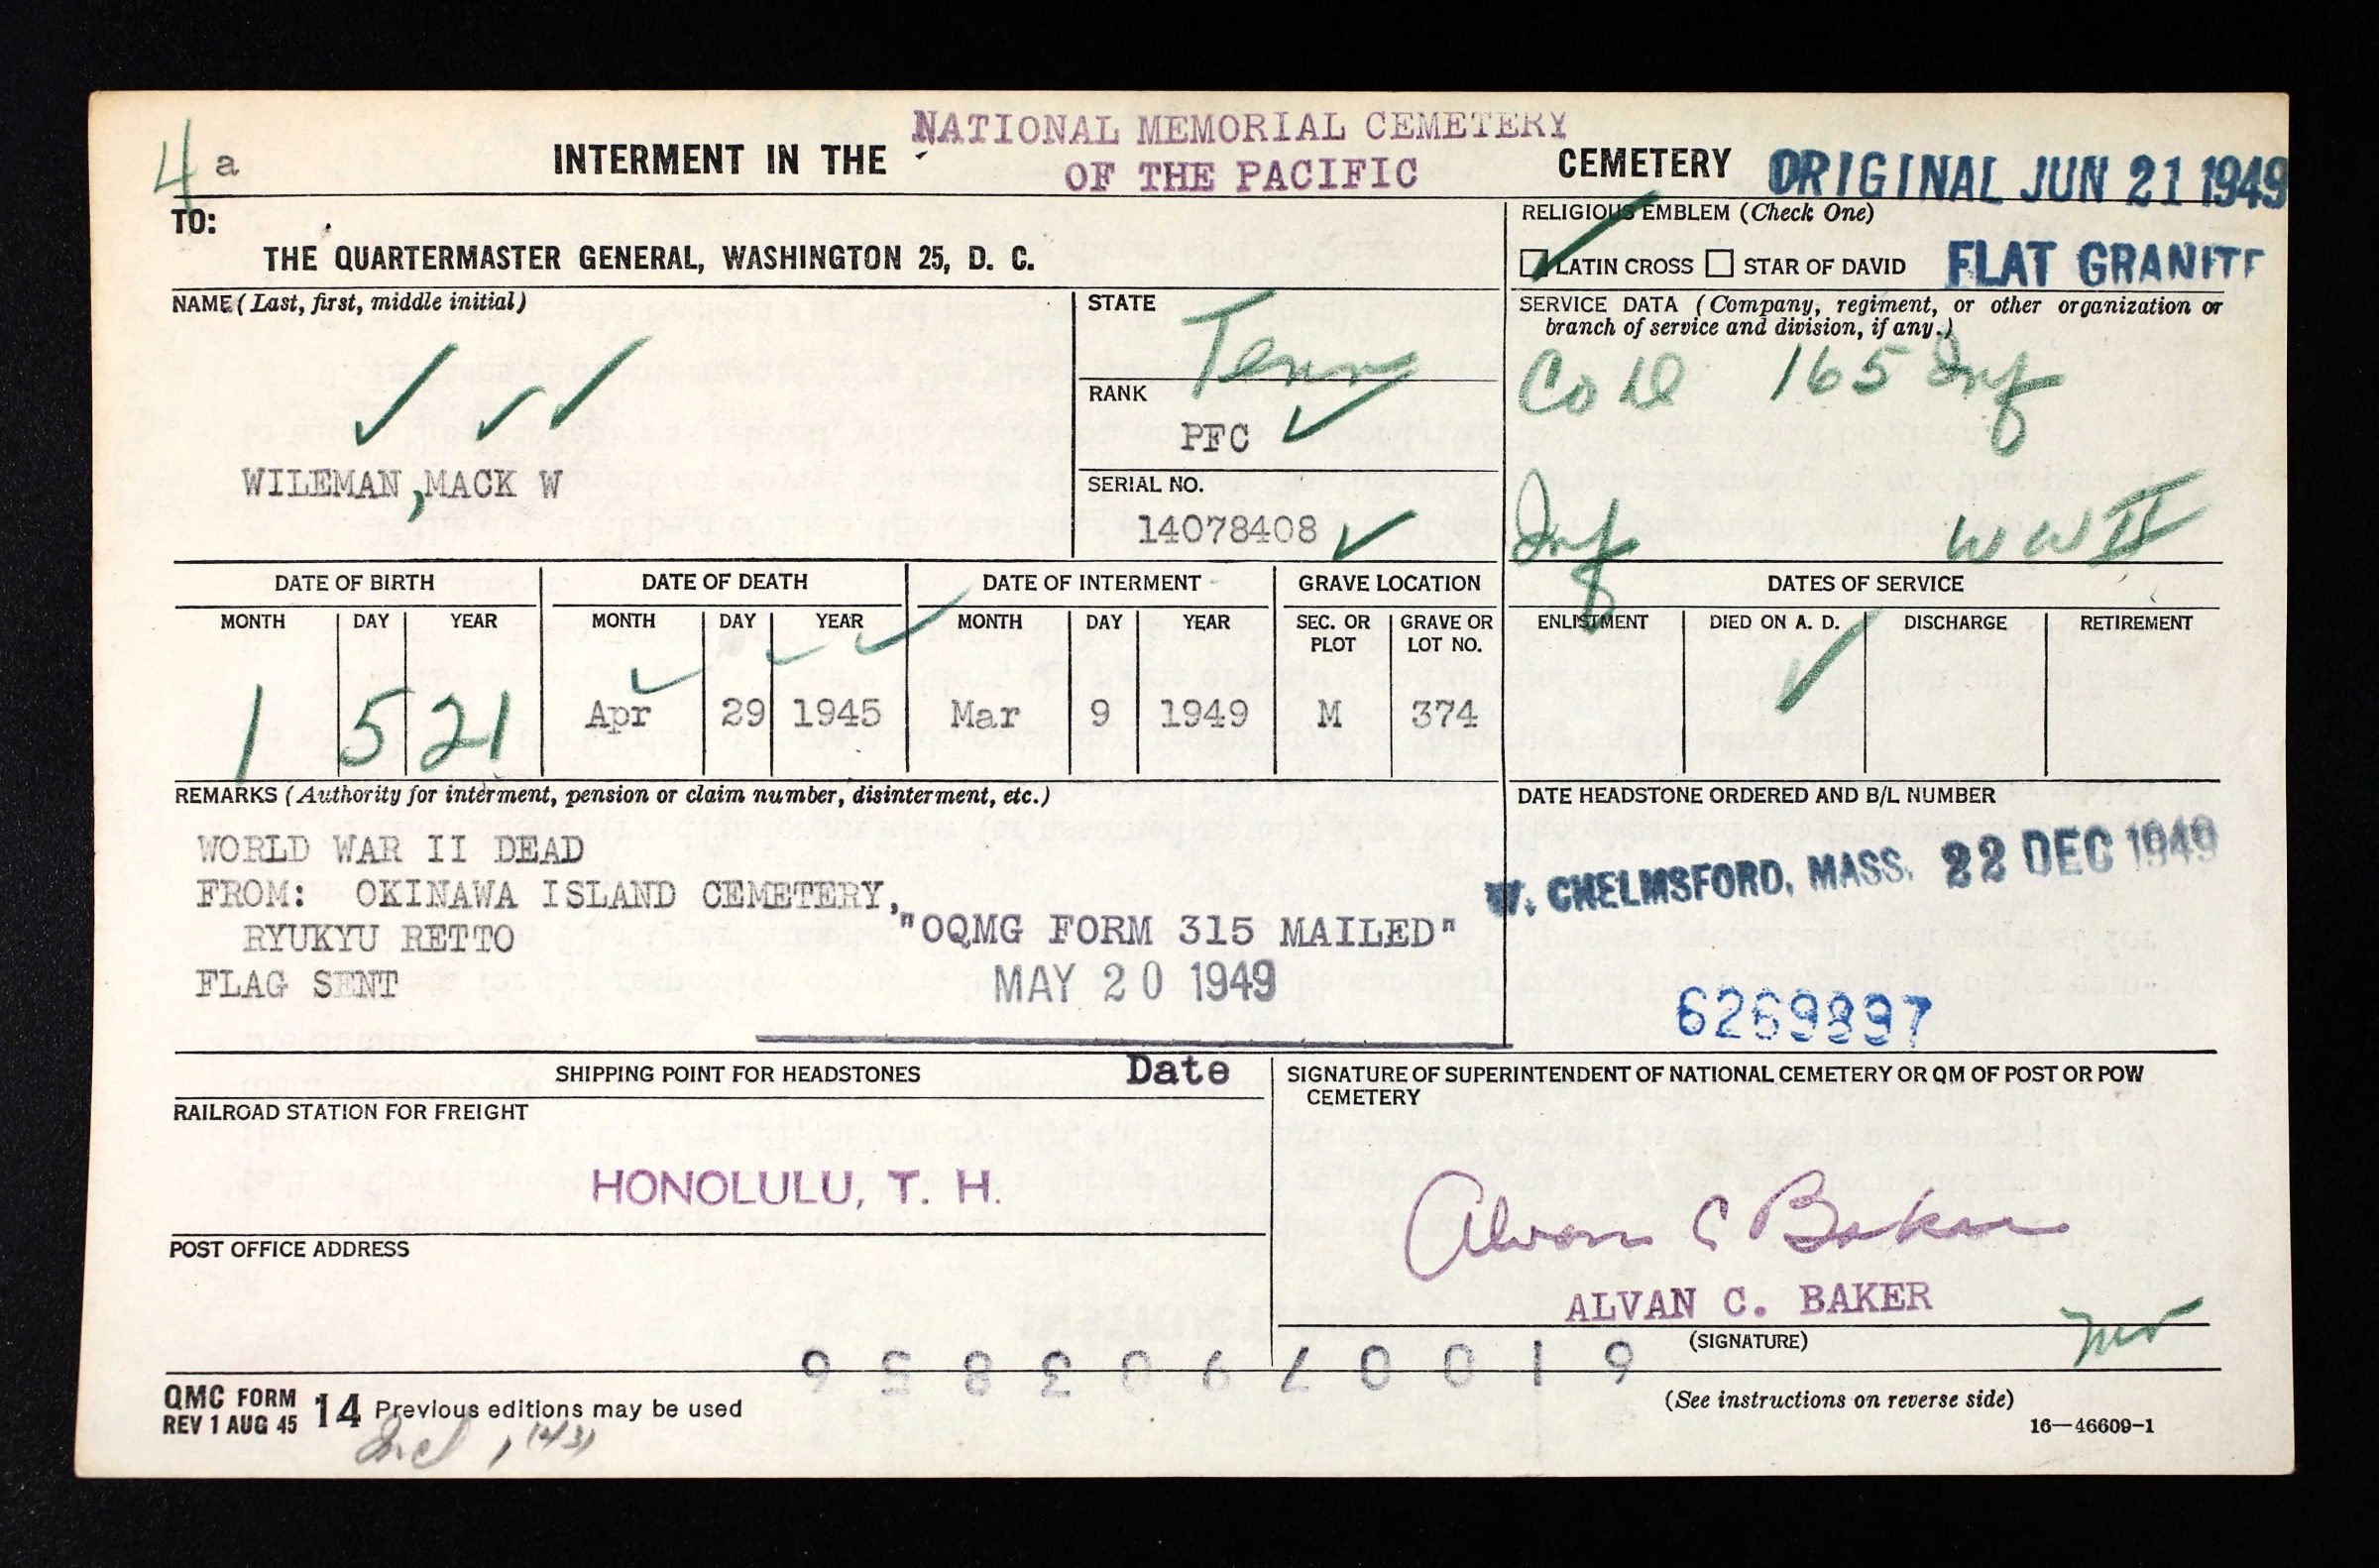 4 a
INTERMENT IN THE NATIONAL MEMORIAL CEMETERY OF THE PACIFIC CEMETERY ORIGINAL JUN 21 1949
TO:
THE QUARTERMASTER GENERAL, WASHINGTON 25, D. C.
RELIGIOUS EMBLEM (Check One)
LATIN CROSS STAR OF DAVID FLAT GRANITE
NAME (Last, first, middle initial)
WILEMAN, MACK W
STATE
Tenn
RANK
PFC
SERIAL NO.
14078408
SERVICE DATA (Company, regiment, or other organization or
branch of service and division, if any.)
Co 165 Inf
Inf WW II
DATE OF BIRTH DATE OF DEATH DATE OF INTERMENT GRAVE LOCATION DATES OF SERVICE
MONTH DAY YEAR MONTH DAY YEAR MONTH DAY YEAR SEC. OR PLOT GRAVE OR LOT NO. ENLISTMENT DIED ON A. D. DISCHARGE RETIREMENT
1 5 21 Apr 29 1945 Mar 9 1949 M 374
REMARKS (Authority for interment, pension or claim number, disinterment, etc.)
WORLD WAR II DEAD
FROM: OKINAWA ISLAND CEMETERY,
RYUKYU RETTO
FLAG SENT
"OQMG FORM 315 MAILED"
MAY 20 1949
Date
DATE HEADSTONE ORDERED AND B/L NUMBER
W. CHELMSFORD, MASS. 22 DEC 1949
SHIPPING POINT FOR HEADSTONES
RAILROAD STATION FOR FREIGHT
HONOLULU, T. H.
POST OFFICE ADDRESS
SIGNATURE OF SUPERINTENDENT OF NATIONAL CEMETERY OR QM OF POST OR POW
CEMETERY
Alvan C Baker
ALVAN C. BAKER
(SIGNATURE)
QMC FORM 14 Previous editions may be used
REV 1 AUG 45
(See instructions on reverse side)
16—46609-1